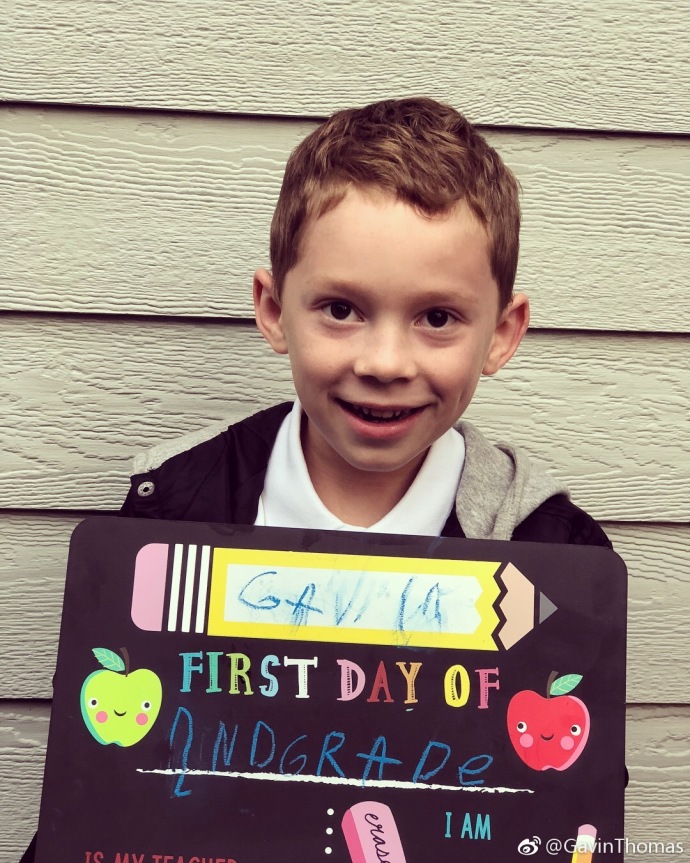 GAVIN
FIRST DAY OF
2NDGRADE
I AM
eras
IS MY TEACHER
@GavinThomas